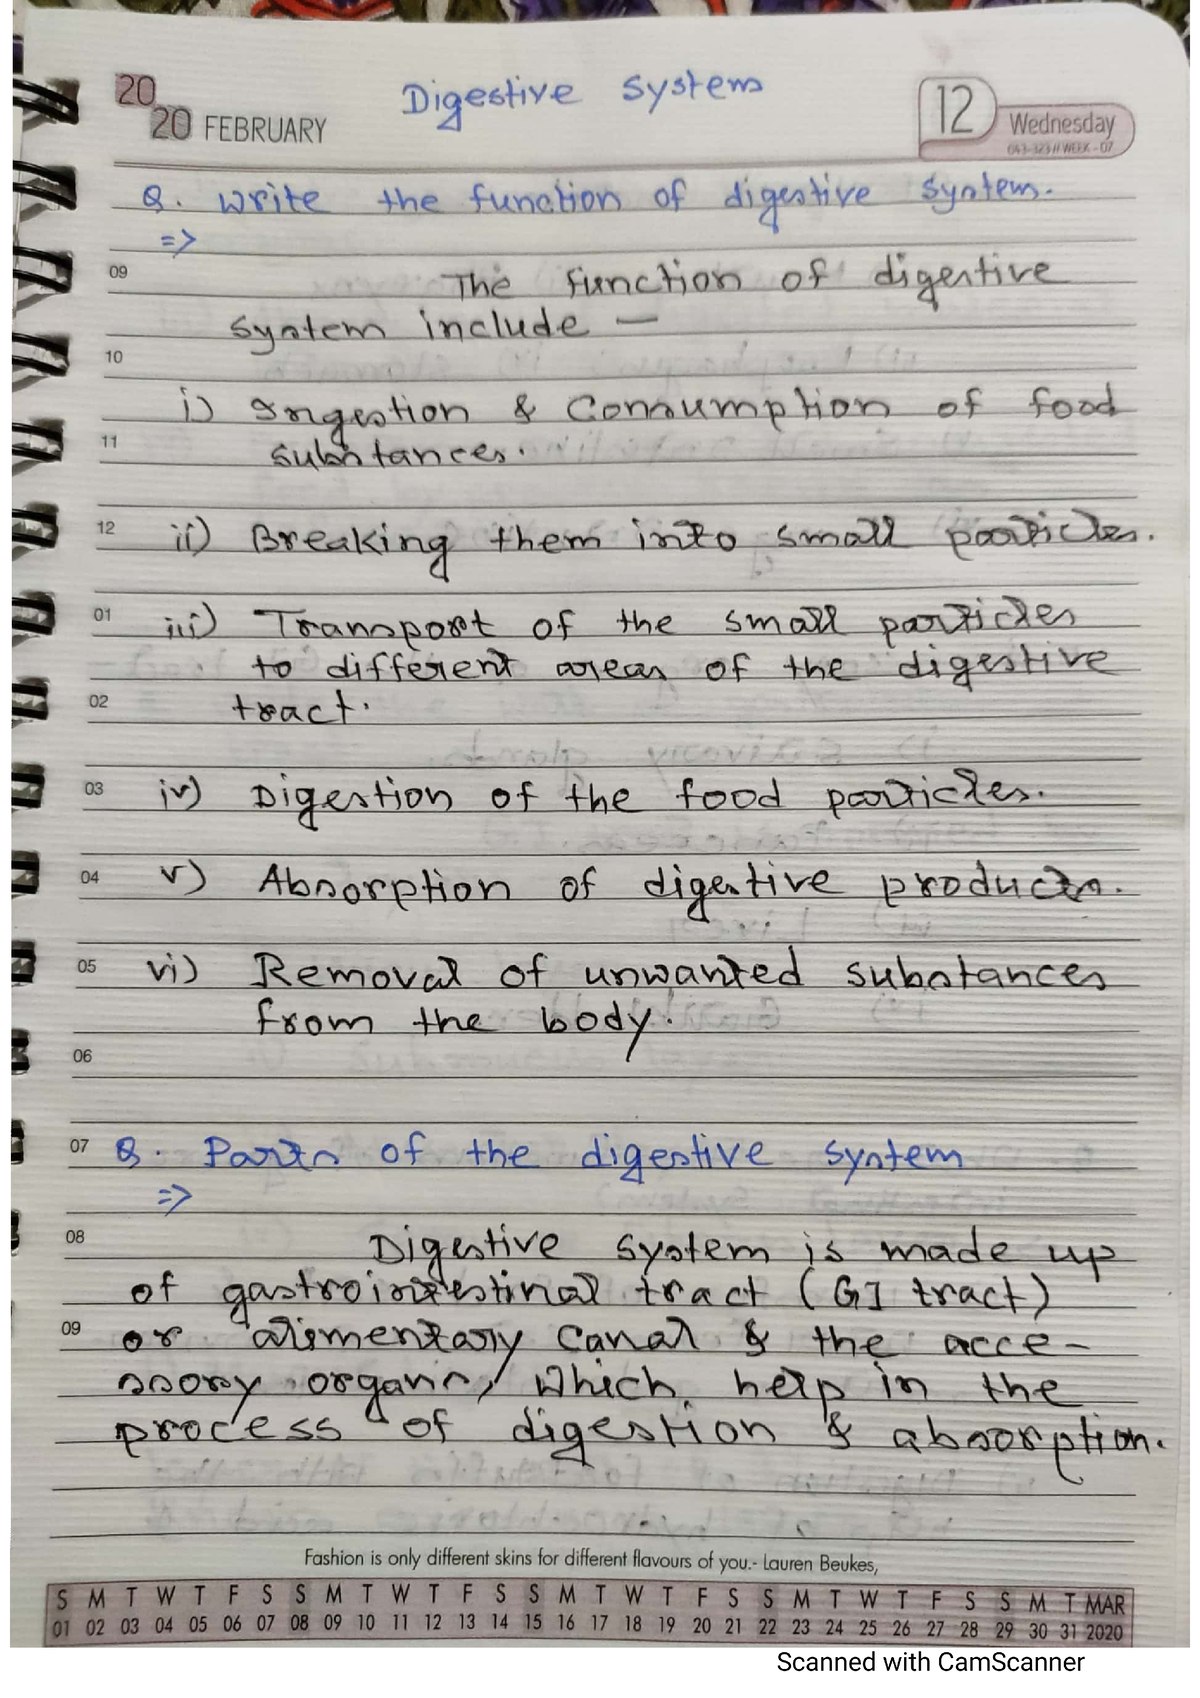 20
20 FEBRUARY
Digestive System
12
Wednesday
043-323 // WEEK - 07
Q. Write the function of digestive system.
=>
09
The function of digestive
system include —
10
i) Ingestion & Consumption of food
11
substances.
12
ii) Breaking them into small particles.
01
iii) Transport of the small particles
to different areas of the digestive
02
tract.
03
iv) Digestion of the food particles.
04
v) Absorption of digestive products.
05
vi) Removal of unwanted substances
from the body.
06
07
Q. Parts of the digestive system
=>
08
Digestive system is made up
of gastrointestinal tract (GI tract)
09
or alimentary canal & the acce-
ssory organs, which help in the
process of digestion & absorption.
Fashion is only different skins for different flavours of you.- Lauren Beukes,
S M T W T F S S M T W T F S S M T W T F S S M T W T F S S M T MAR
01 02 03 04 05 06 07 08 09 10 11 12 13 14 15 16 17 18 19 20 21 22 23 24 25 26 27 28 29 30 31 2020
Scanned with CamScanner